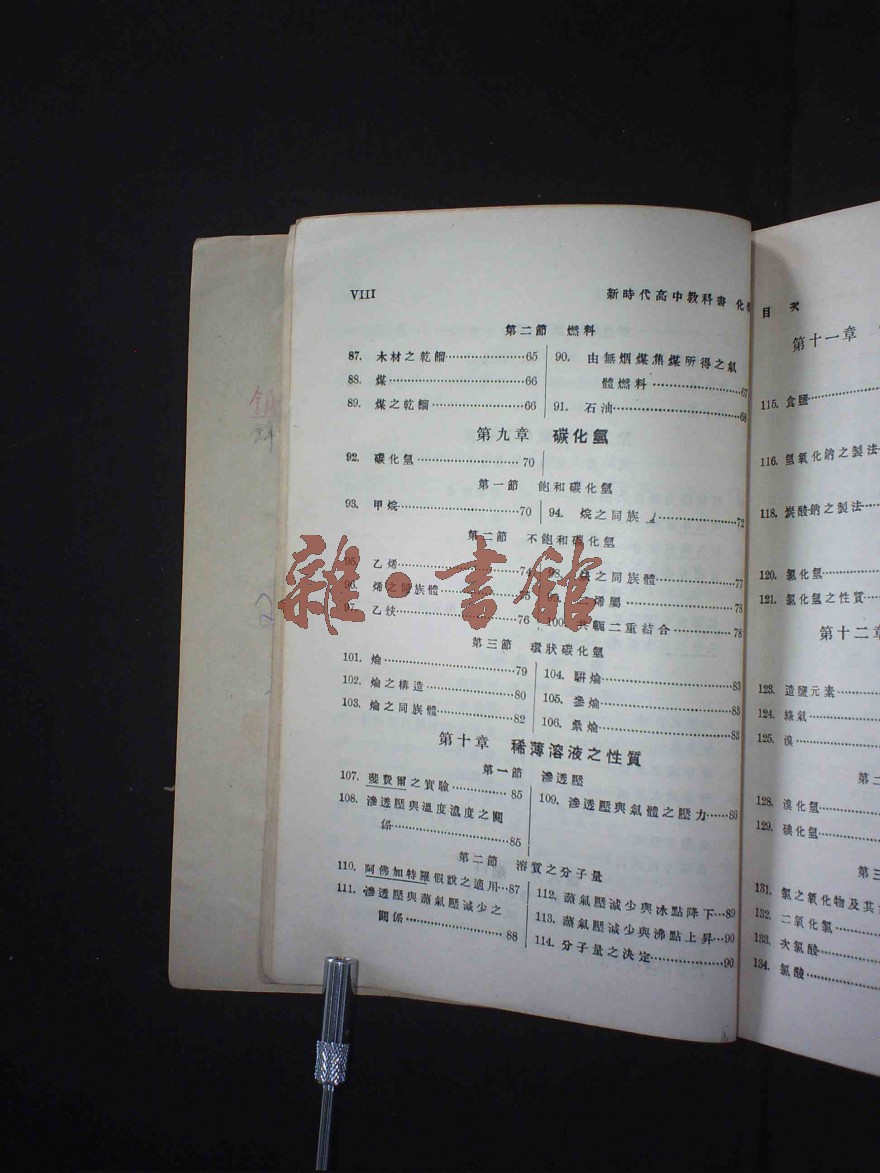 VIII
新時代高中教科書 化
第二節 燃料
87. 木材之乾餾………………65
88. 煤………………………66
89. 煤之乾餾………………66
90. 由無烟煤焦煤所得之氣
體燃料………………67
91. 石油………………………68
第九章 碳化氫
92. 碳化氫………………70
第一節 飽和碳化氫
93. 甲烷………………………70
94. 烷之同族………………72
第二節 不飽和碳化氫
95. 乙烯………………………74
96. 烯之同族體
97. 乙炔………………………76
之同族體………………77
烯屬………………………78
100. 共軛二重結合…………78
第三節 環狀碳化氫
101. 㷍………………………79
102. 㷍之構造………………80
103. 㷍之同族體……………82
104. 駢㷍………………………83
105. 參㷍………………………83
106. 㷍………………………83
第十章 稀薄溶液之性質
第一節 滲透壓
107. 斐費爾之實驗…………85
108. 滲透壓與溫度濃度之關
係………………………85
109. 滲透壓與氣體之壓力……86
第二節 溶質之分子量
110. 阿佛加特羅假說之適用…87
111. 滲透壓與蒸氣壓減少之
關係………………………88
112. 蒸氣壓減少與冰點降下…89
113. 蒸氣壓減少與沸點上昇…90
114. 分子量之決定……………90
目次
第十一章
115. 食鹽
116. 氫氧化鈉之製法
118. 炭酸鈉之製法
120. 氯化氫
121. 氯化氫之性質
第十二章
123. 造鹽元素
124. 綠氣
125. 溴
第二
128. 溴化氫
129. 碘化氫
第三
131. 氯之氧化物及其
132. 二氧化氯
133. 次氯酸
134. 氯酸
雜·書館